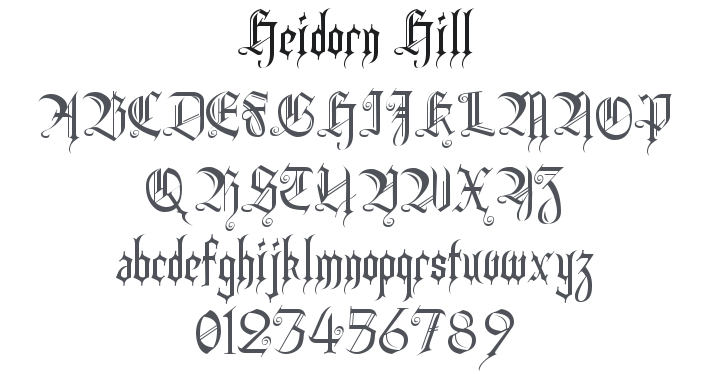 Heidorn Hill
ABCDEFGHIJKLMNOP
QRSTUVWXYZ
abcdefghijklmnopqrstuvwxyz
0123456789